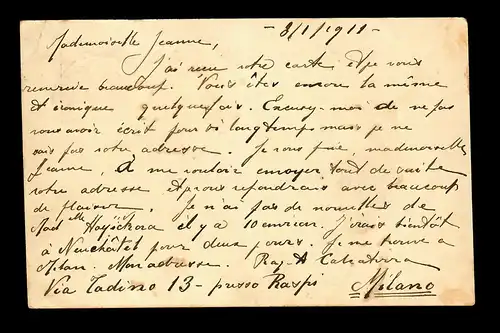 8/1/1911-
Mademoiselle Jeanne,
J'ai reçu votre carte et je vous
remercie beaucoup. Vous êtes encore la même
et ironique quelquefois. Excusez-moi de ne pas
vous avoir écrit pour si longtemps mais je ne
sais pas votre adresse. Je vous prie, mademoiselle
Jeanne, à me vouloir envoyer tout de suite
votre adresse et je vous répondrais avec beaucoup
de plaisir. Je n'ai pas de nouvelles de
Mad^elle il y a 10 environ. J'irais bientôt
à Neuchâtel pour deux jours. Je me trouve à
Milan. Mon adresse. Rag. A Calcaterra
Via Tadino 13- presso Raspi Milano